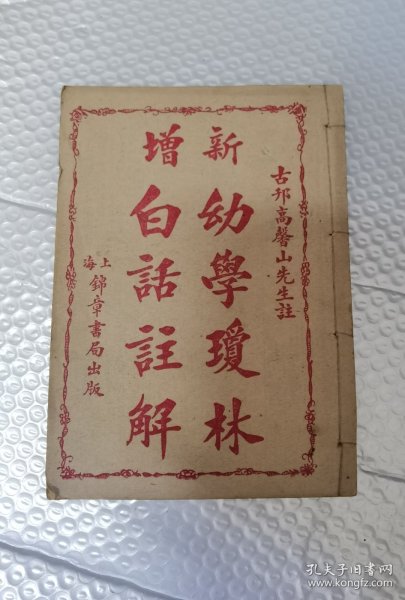 古邘高馨山先生註
新增
幼學瓊林
白話註解
上海
錦章書局出版
孔夫子旧书网
www.kongfz.com